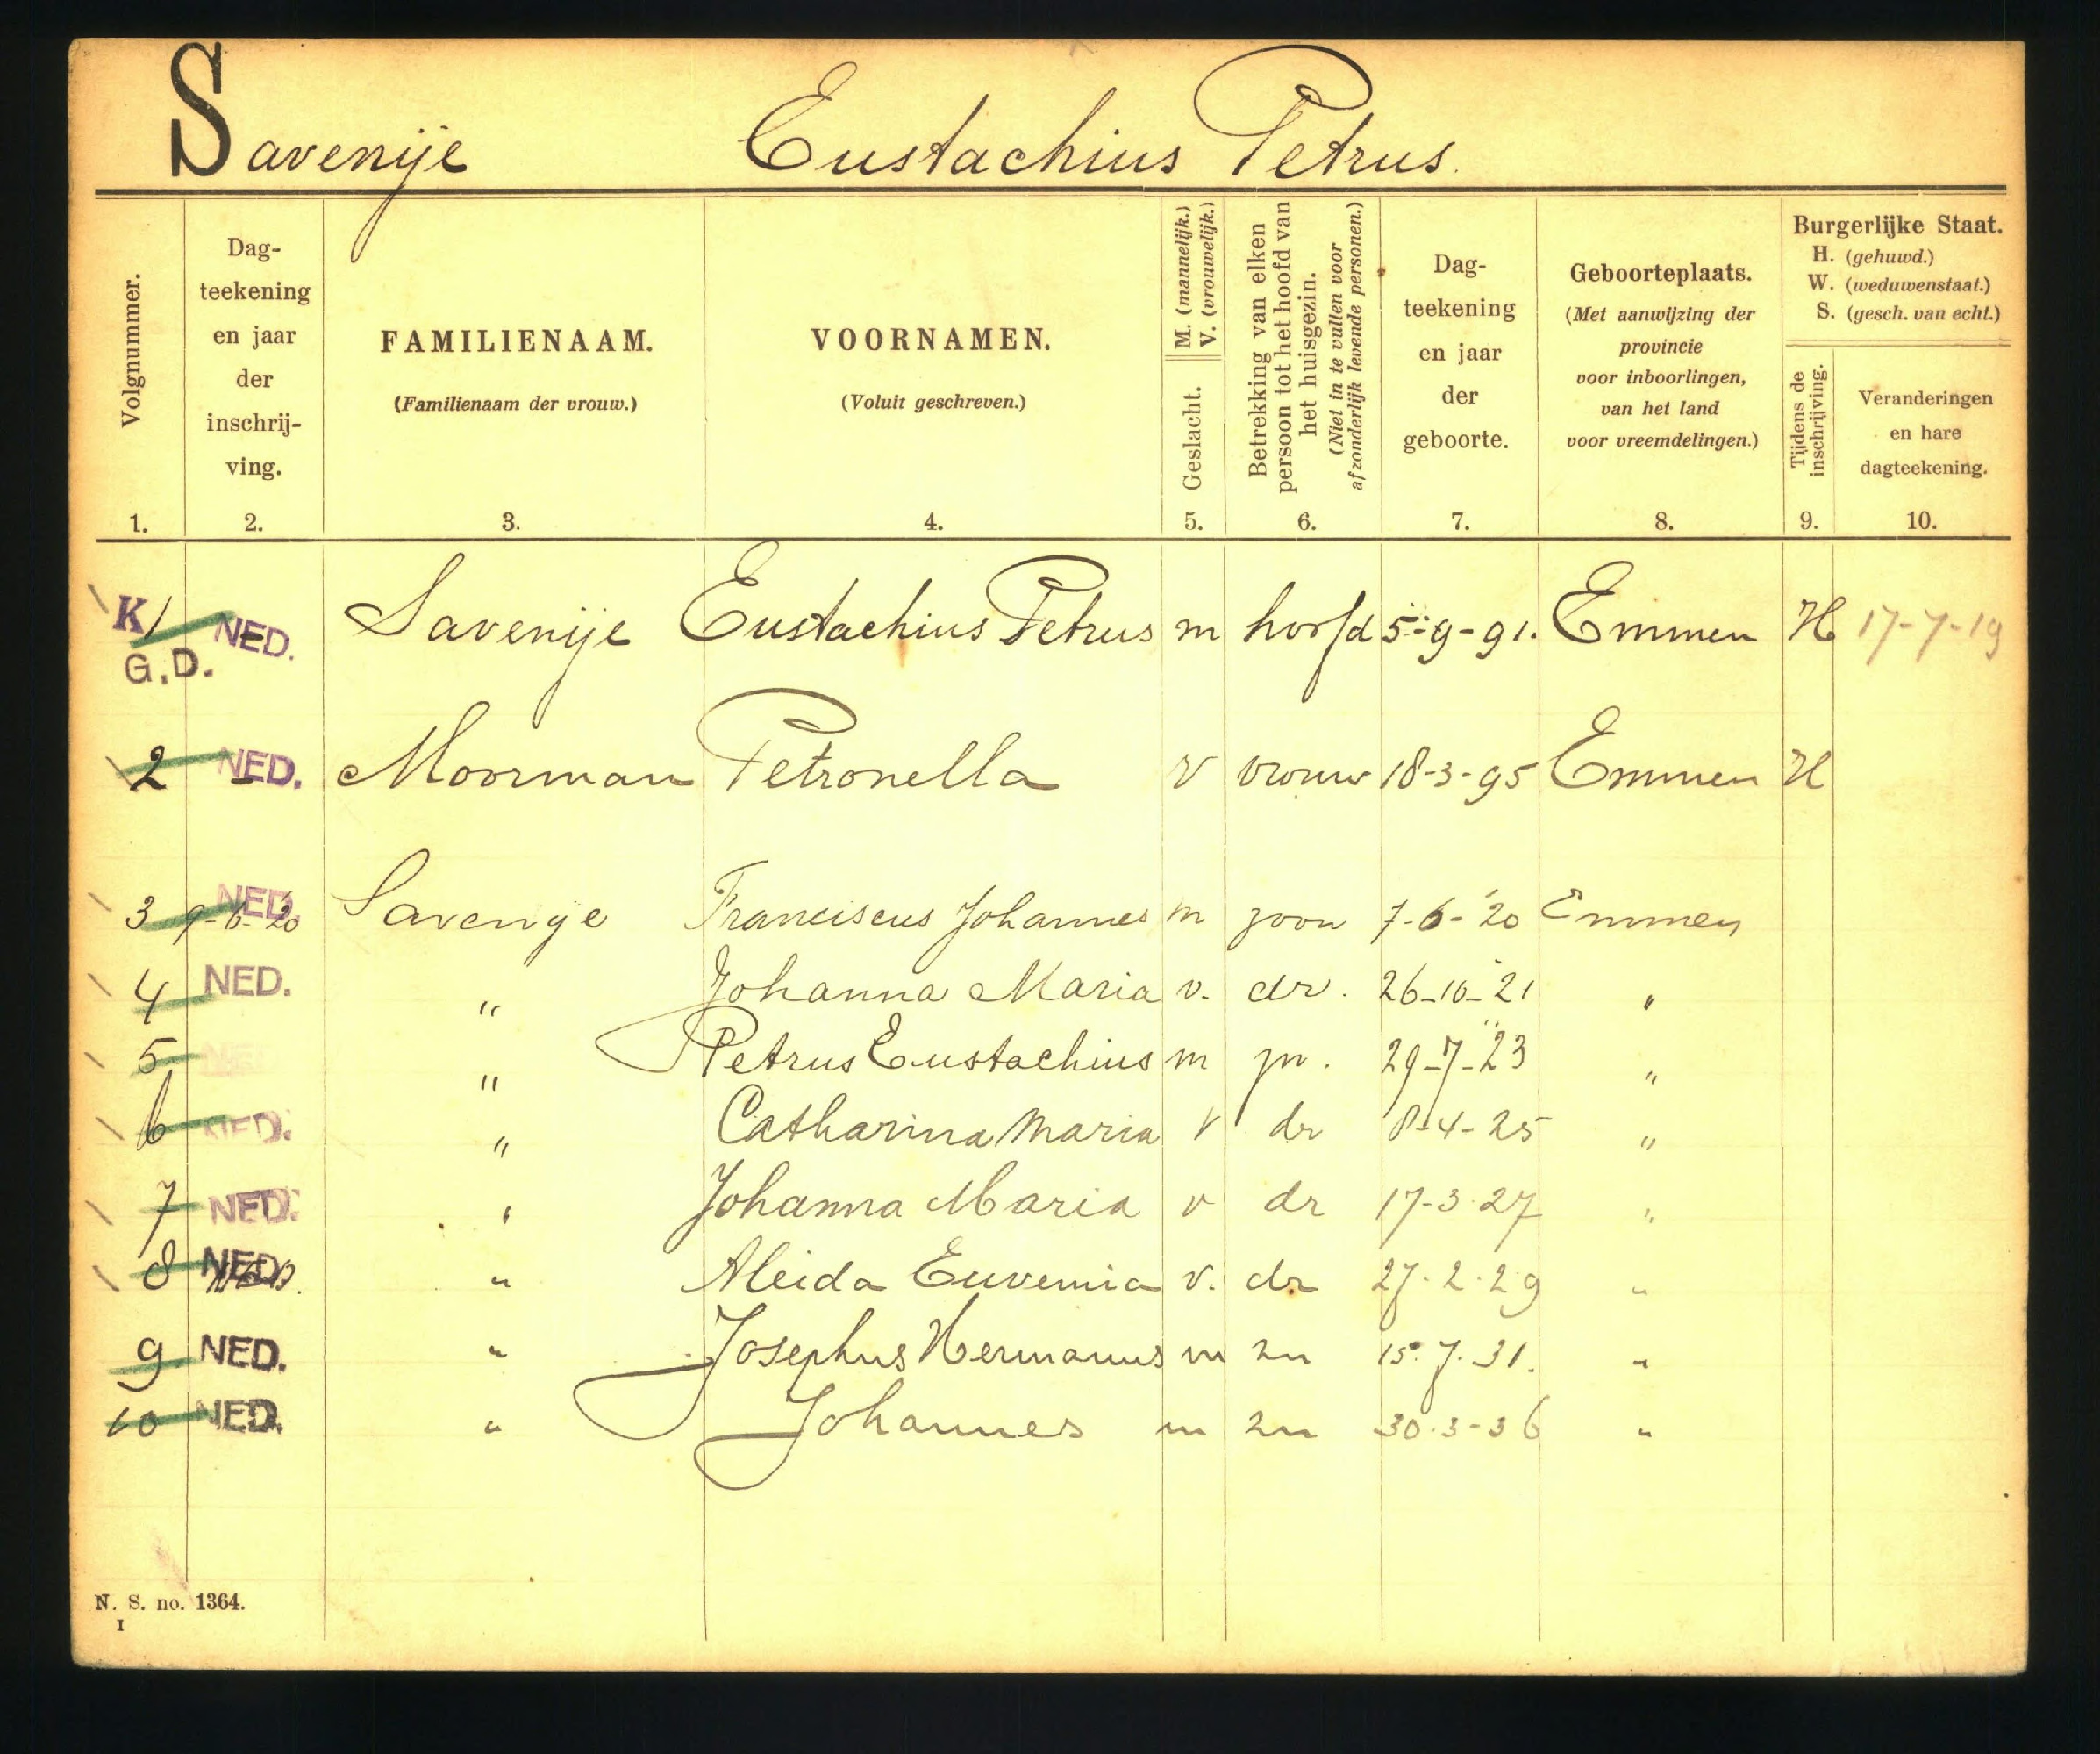 Savenije Eustachius Petrus.
Volgnummer.
1.
Dag-
teekening
en jaar
der
inschrij-
ving.
2.
FAMILIENAAM.
(Familienaam der vrouw.)
3.
VOORNAMEN.
(Voluit geschreven.)
4.
M. (mannelijk.)
V. (vrouwelijk.)
Geslacht.
5.
Betrekking van elken
persoon tot het hoofd van
het huisgezin.
(Niet in te vullen voor
afzonderlijk levende personen.)
6.
Dag-
teekening
en jaar
der
geboorte.
7.
Geboorteplaats.
(Met aanwijzing der
provincie
voor inboorlingen,
van het land
voor vreemdelingen.)
8.
Burgerlijke Staat.
H. (gehuwd.)
W. (weduwenstaat.)
S. (gesch. van echt.)
Tijdens de
inschrijving.
9.
Veranderingen
en hare
dagteekening.
10.
K 1 NED. Savenije Eustachius Petrus m hoofd 5-9-91. Emmen H 17-7-19
G.D.
2 NED. Moorman Petronella V vrouw 18-3-95 Emmen H
3 9-6-20 NED. Savenije Franciscus Johannes m zoon 7-6-'20 Emmen
4 NED. " Johanna Maria v. dr. 26-10-21 "
5 NED " Petrus Eustachius m zn. 29-7-23 "
6 NED. " Catharina Maria V dr 8-4-25 "
7 NED. " Johanna Maria v dr 17-3-27 "
8 NED. " Aleida Euvemia v. dr 27.2.29 "
9 NED. " Josephus Hermanus m zn 15.7.31. "
10 NED. " Johannes m zn 30.3-36 "
N. S. no. 1364.
I